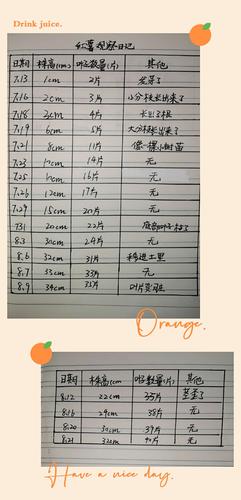 Drink juice.
红薯观察日记
日期 株高(cm) 叶子数量(片) 其他
7.13 1cm 2片 发芽了
7.16 2cm 3片 小分枝长出来了
7.18 3cm 4片 长出了根
7.19 6cm 5片 大分枝长出来了
7.21 8cm 11片 像一棵小树苗
7.23 14片 无
7.25 16片 无
7.26 12cm 17片 无
7.29 15cm 20片 无
7.31 20cm 22片
8.3 30cm 24片 无
8.6 32cm 31片 移进土里
8.7 33cm 33片 无
8.9 34cm 35片 叶片变旺
Orange.
日期 株高cm 叶子数量(片) 其他
8.12 22cm 35片
8.16 29cm 38片 无
8.20 30cm 39片 无
8.21 32cm 40片 无
Have a nice day.